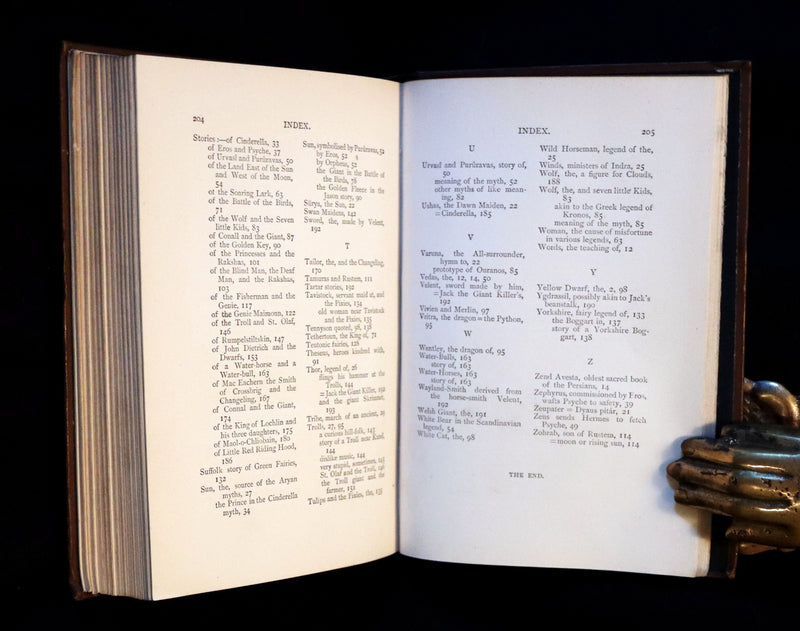 204
INDEX.
Stories :—of Cinderella, 33
of Eros and Psyche, 37
of Urvasî and Purûravas, 50
of the Land East of the Sun
and West of the Moon,
54
of the Soaring Lark, 63
of the Battle of the Birds,
71
of the Wolf and the Seven
little Kids, 83
of Conall and the Giant, 87
of the Golden Key, 90
of the Princesses and the
Rakshas, 101
of the Blind Man, the Deaf
Man, and the Rakshas,
103
of the Fisherman and the
Genie, 117
of the Genie Maimoun, 122
of the Troll and St. Olaf,
146
of Rumpelstiltskin, 147
of John Dietrich and the
Dwarfs, 153
of a Water-horse and a
Water-bull, 163
of Mac Eachern the Smith
of Crossbrig and the
Changeling, 167
of Connal and the Giant,
174
of the King of Lochlin and
his three daughters, 175
of Maol-a-Chliobain, 180
of Little Red Riding Hood,
186
Suffolk story of Green Fairies,
132
Sun, the, source of the Aryan
myths, 27
the Prince in the Cinderella
myth, 34
Sun, symbolised by Purûravas, 52
by Eros, 52
by Orpheus, 52
the Giant in the Battle of
the Birds, 78
the Golden Fleece in the
Jason story, 90
Sûrya, the Sun, 22
Swan Maidens, 142
Sword, the, made by Velent,
192
T
Tailor, the, and the Changeling,
170
Tamuras and Rustem, 111
Tartar stories, 192
Tavistock, servant maid at, and
the Pixies, 134
old woman near Tavistock
and the Pixies, 135
Tennyson quoted, 98, 138
Tethertoun, the King of, 71
Teutonic fairies, 128
Theseus, heroes kindred with,
91
Thor, legend of, 26
flings his hammer at the
Trolls, 144
= Jack the Giant Killer, 192
and the giant Skrimner,
193
Tribe, march of an ancient, 29
Trolls, 27, 95
a curious hill-folk, 143
story of a Troll near Kund,
144
dislike music, 144
very stupid, sometimes, 145
St. Olaf and the Troll, 146
the Troll giant and the
farmer, 151
Tulips and the Pixies, the, 135
INDEX.
205
U
Urvasî and Purûravas, story of,
50
meaning of the myth, 52
other myths of like mean-
ing, 82
Ushas, the Dawn Maiden, 22
= Cinderella, 185
V
Varuna, the All-surrounder,
hymn to, 22
prototype of Ouranos, 85
Vedas, the, 12, 14, 50
Velent, sword made by him,
= Jack the Giant Killer's,
192
Vivien and Merlin, 97
Vritra, the dragon = the Python,
95
W
Wantley, the dragon of, 95
Water-Bulls, 163
story of, 163
Water-Horses, 163
story of, 163
Wayland-Smith derived from
the horse-smith Velent,
192
Welsh Giant, the, 191
White Bear in the Scandinavian
legend, 54
White Cat, the, 98
Wild Horseman, legend of the,
25
Winds, ministers of Indra, 25
Wolf, the, a figure for Clouds,
188
Wolf, the, and seven little Kids,
83
akin to the Greek legend of
Kronos, 85
meaning of the myth, 85
Woman, the cause of misfortune
in various legends, 63
Words, the teaching of, 12
Y
Yellow Dwarf, the, 2, 98
Ygdrassil, possibly akin to Jack's
beanstalk, 190
Yorkshire, fairy legend of, 133
the Boggart in, 137
story of a Yorkshire Bog-
gart, 138
Z
Zend Avesta, oldest sacred book
of the Persians, 14
Zephyrus, commissioned by Eros,
wafts Psyche to safety, 39
Zeupater = Dyaus pitâr, 21
Zeus sends Hermes to fetch
Psyche, 49
Zohrab, son of Rustem, 114
= moon or rising sun, 114
THE END.